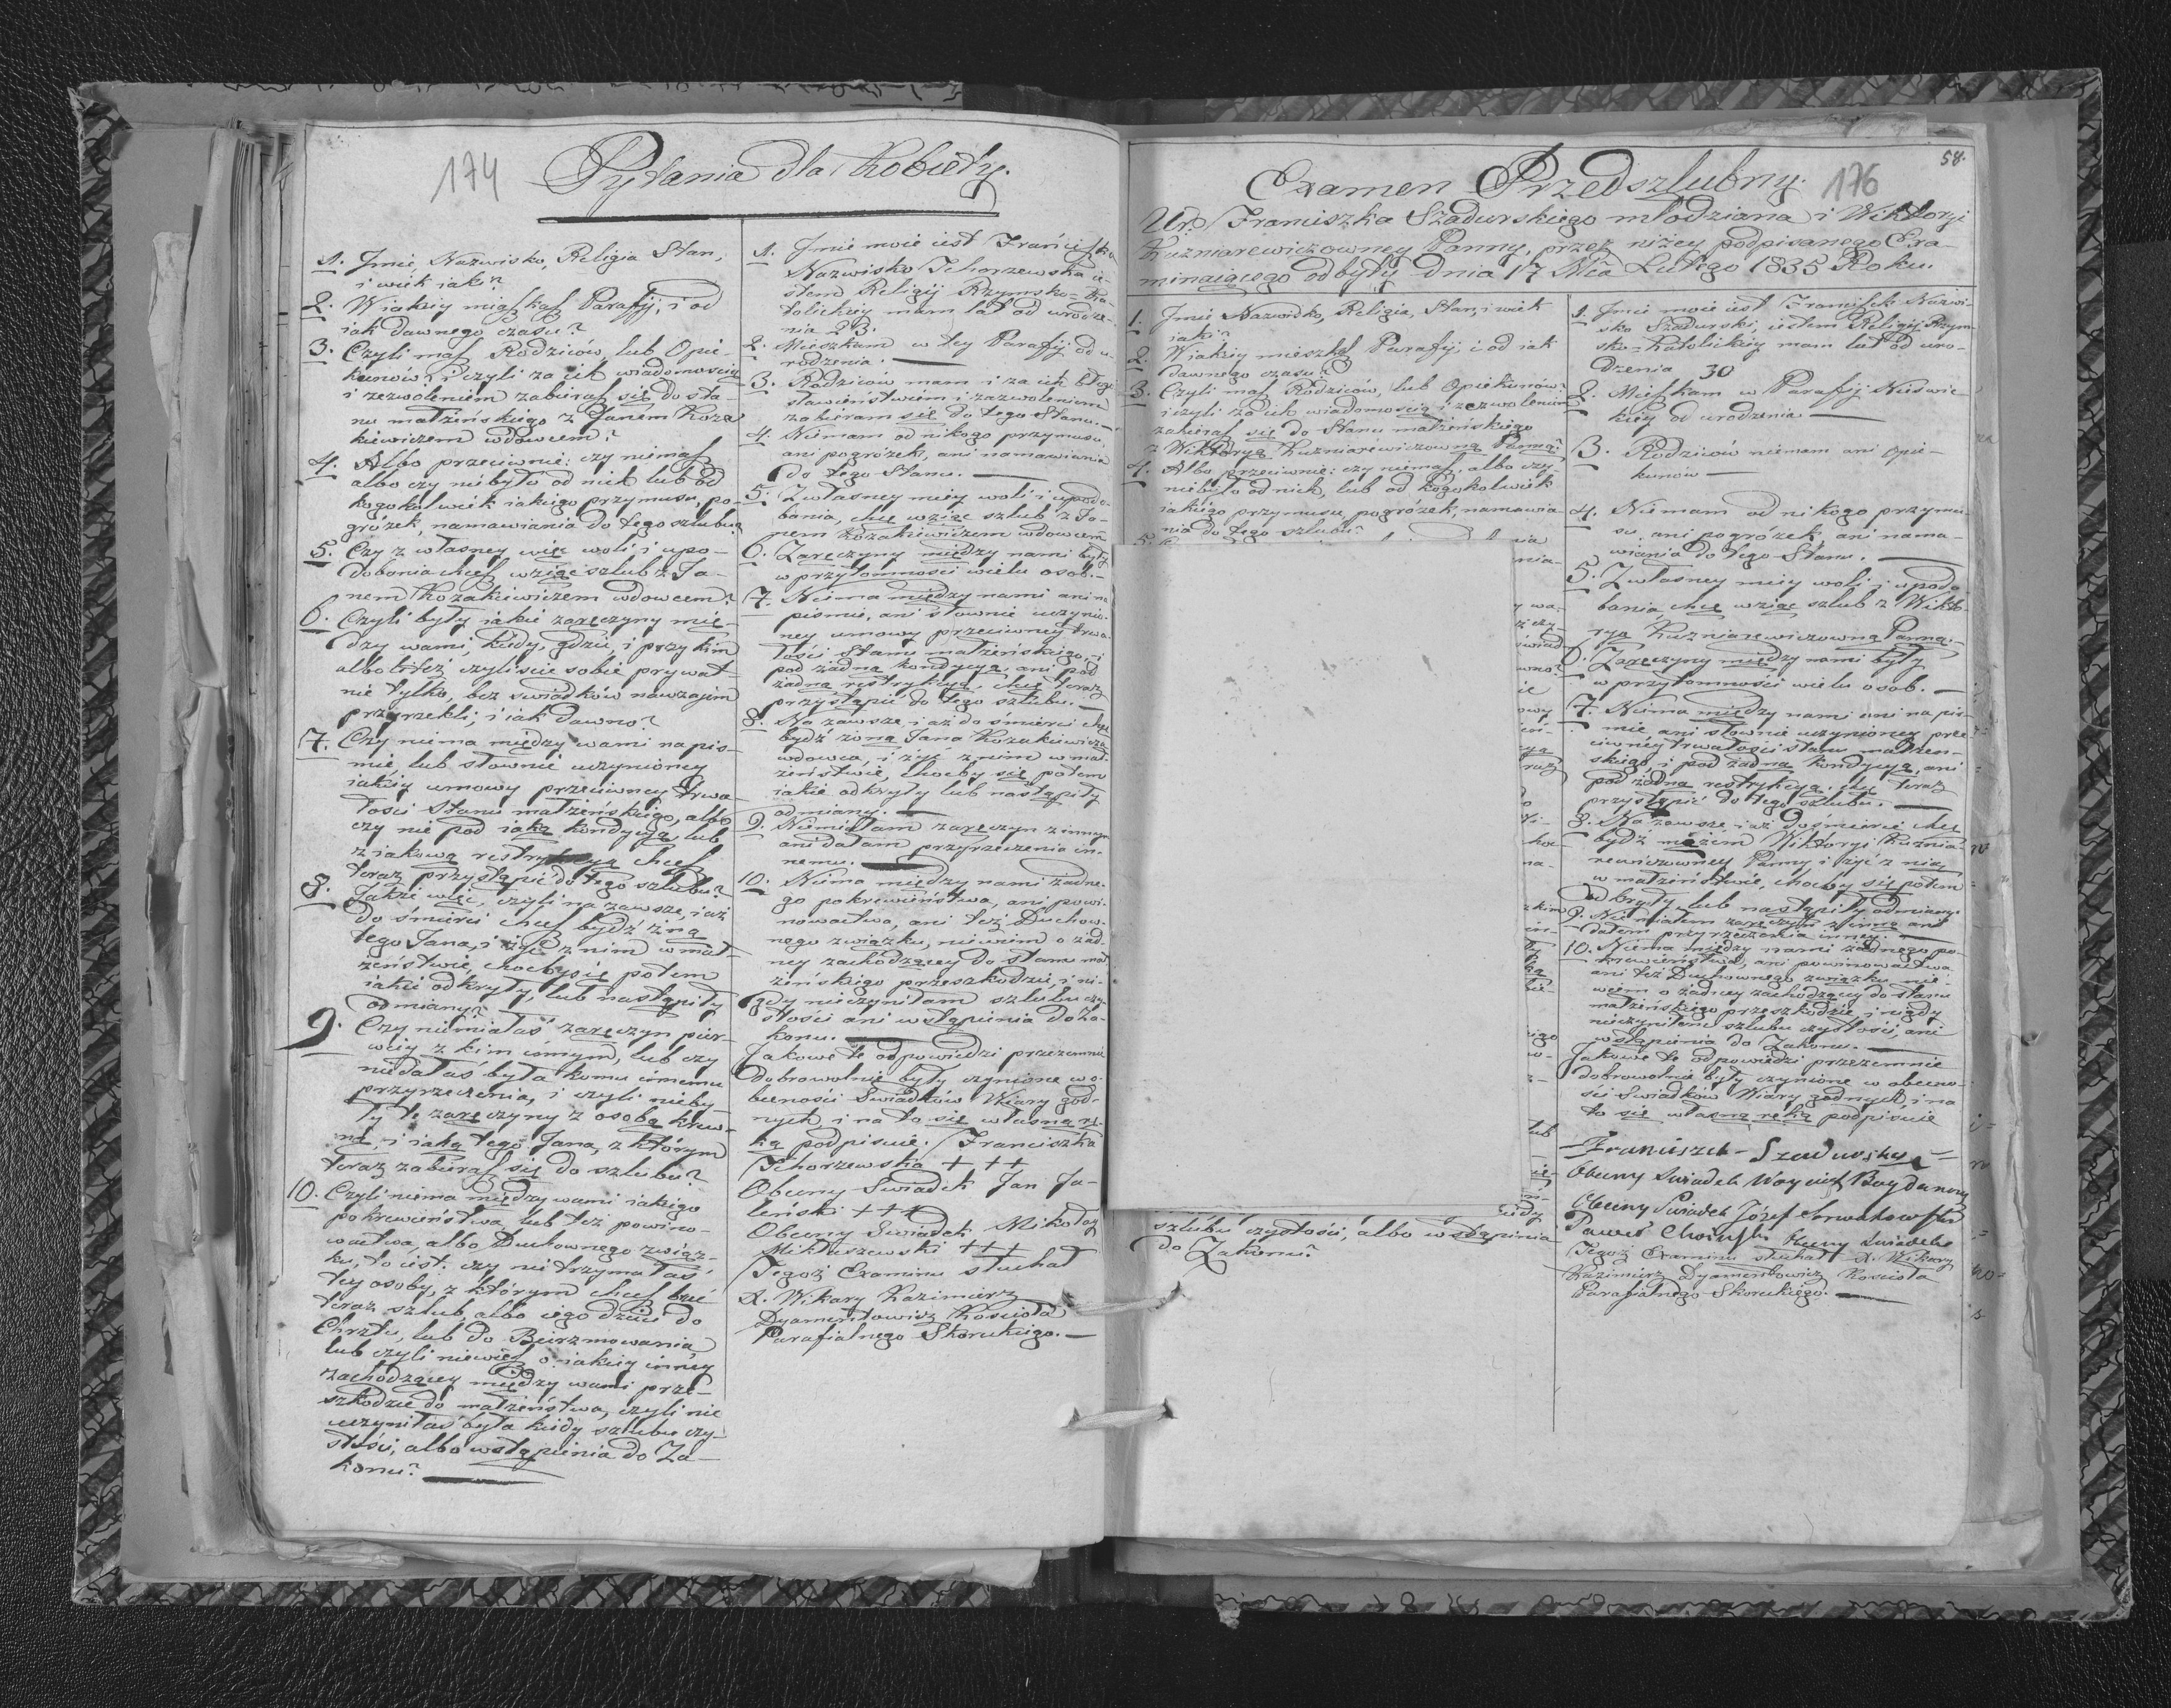 174
Pytania dla Kobiety.
1. Jmie, Nazwisko, Religia Stan,
i wiek iak?
2. W iakiey mięszkasz Parafij, i od
iak dawnego czasu?
3. Czyli masz Rodziców, lub Opie-
kunów? i czyli za ich wiadomością
i zezwoleniem zabierasz się do sta-
nu małżeńskiego z Janem Koza-
kiewiczem wdowcem?
4. Albo przeciwnie: czy niemasz
albo czy niebyło od nich lub od
kogokolwiek iakiego przymusu, po-
gróżek, namawiania do tego szlubu?
5. Czy z własney więc woli i upo-
dobania chcesz wziąć szlub z Ja-
nem Kozakiewiczem wdowcem?
6. Czyli były iakie zaręczyny mię-
dzy wami, kiedy, gdzie, i przy kim
albo też czyliście sobie prywat-
nie tylko, bez świadków nawzajem
przyrzekli; i iak dawno?
7. Czy niema między wami na piś-
mie lub słownie uczynioney
iakiey umowy przeciwney trwa-
łości Stanu małżeńskiego, albo
czy nie pod iaką kondycyą, lub
z iakową restrykcyą chcesz
teraz przystąpić do tego szlubu?
8. Jakże więc, czyli na zawsze, i aż
do śmierci chcesz bydź żoną
tego Jana, i żyć z nim w mał-
żeństwie, chocby się potem
iakie odkryły, lub nastąpiły
odmiany?
9. Czy niemiałaś zaręczyn pier-
wey z kim innym, lub czy
niedałaś była komu innemu
przyrzeczenia, i czyli nieby-
ły te zaręczyny z osobą krew-
ną, i iaką tego Jana, z którym
teraz zabierasz się do szlubu?
10. Czyli niema między wami iakiego
pokrewieństwa, lub też powino-
wactwa, albo Duchownego związ-
ku, to iest: czy nie trzymałaś
tey osoby, z którym chcesz brać
teraz szlub, albo iego dzieci do
Chrztu, lub do Bierzmowania,
lub czyli niewiesz o iakiey inney
zachodzącey między wami prze-
szkodzie do małżeństwa, czyli nie
uczyniłaś była kiedy szlubu czy-
stości, albo wstąpienia do Za-
konu?
1. Jmie moie iest Franciszka
Nazwisko Tchorzewska ie-
stem Religij Rzymsko-Ka-
tolickiey mam lat od urodze-
nia 23.
2. Mieszkam w tey Parafij od u-
rodzenia.
3. Rodziców mam i za ich błogo-
sławieństwem i zazwoleniem
zabieram się do tego Stanu.
4. Niemam od nikogo przymusu,
ani pogróżek, ani namawiania
do tego Stanu.
5. Z własney mey woli i upodo-
bania, chcę wziąć szlub z Ja-
nem Kozakiewiczem wdowcem
6. Zaręczyny między nami były
w przytomności wielu osób.
7. Niema między nami ani na
piśmie, ani słownie uczynio-
ney umowy przeciwney trwa-
łości Stanu małżeńskiego, i
pod żadną kondycyą, ani pod
żadną restrykcyą, chcę teraz
przystąpić do tego szlubu.
8. Na zawsze i aż do śmierci chcę
bydź żoną Jana Kozakiewicza
wdowca, i żyć z nim w mał-
żeństwie, chocby się potem
iakie odkryły lub nastąpiły
odmiany.
9. Niemiałam zaręczyn z innym
ani dałam przyrzeczenia in-
nemu.
10. Niema między nami żadne-
go pokrewieństwa, ani powi-
nowactwa, ani też Duchow-
nego związku, niewiem o żad-
ney zachodzącey do stanu mał-
żeńskiego przeszkodzie, i ni-
gdy nieczyniłam szlubu czy-
stości ani wstąpienia do Za-
konu.
Jakowe te odpowiedzi przezemnie
dobrowolnie były czynione w o-
becności Swiadków Wiary god-
nych, i na to się własną rę-
ką podpisuie. Franciszka
Tchorzewska + + +
Obecny Swiadek Jan Ja-
leński + + +
Obecny Swiadek Mikołay
Mikluszewski + + +
Tegoż Examinu słuchał
X. Wikary Kazimierz
Dyamentowicz Kościoła
Parafialnego Skoruckiego.
58.
Examen Przedszlubny. 176
Ur. Franciszka Szadurskiego młodziana i Wiktoryi
Kuzniarewiczowney Panny, przez niżey podpisanego Exa-
minaiącego odbyty dnia 17 Mca Lutego 1835 Roku.
1. Jmie Nazwisko, Religia, Stan, i wiek
iaki?
2. W iakiey mieszkasz Parafij, i od iak
dawnego czasu?
3. Czyli masz Rodziców, lub Opiekunów?
i czyli za ich wiadomością i zezwoleniem
zabierasz się do Stanu małżeńskiego
z Wiktoryą Kuzniarewiczowną Panną?
4. Albo przeciwnie: czy niemasz, albo czy
niebyło od nich, lub od kogokolwiek
iakiego przymusu, pogróżek, namawia-
nia do tego szlubu?
szlubu czystości, albo wstąpienia
do Zakonu?
1. Jmie moie iest Franciszek Nazwi-
sko Szadurski, iestem Religij Rzym-
sko-Katolickiey mam lat od uro-
dzenia 30
2. Mieszkam w Parafij Nieświe-
kiey od urodzenia
3. Rodziców niemam ani opie-
kunów
4. Niemam od nikogo przymu-
su, ani pogróżek, ani nama-
wiania do tego Stanu.
5. Z własney mey woli i upodo-
bania, chcę wziąć szlub z Wikto-
ryą Kuzniarewiczowną Panną.
6. Zaręczyny między nami były
w przytomności wielu osob.
7. Niema między nami ani na piś-
mie ani słownie uczynioney prze-
ciwney trwałości stanu małżeń-
skiego, i pod żadną kondycyą, ani
pod żadną restrykcyą, chcę teraz
przystąpić do tego szlubu.
8. Na zawsze i aż do śmierci chcę
bydź mężem Wiktoryi Kuznia-
rewiczowney Panny i żyć z nią
w małżeństwie, chocby się potem
odkryły lub nastąpiły odmiany.
9. Niemiałem zaręczyn z inną ani
dałem przyrzeczenia inney.
10. Niema między nami żadnego po-
krewieństwa, ani powinowactwa
ani też Duchownego związku, nie-
wiem o żadney zachodzącey do stanu
małżeńskiego przeszkodzie, i nigdy
nieczyniłem szlubu czystości, ani
wstąpienia do Zakonu.
Jakowe te odpowiedzi przezemnie
dobrowolnie były czynione w obecno-
ści Swiadków Wiary godnych, i na
to się własną ręką podpisuie
Franciszek Szadurski
Obecny Swiadek Woyciech Bogdanowicz
Obecny Swiadek Józef
Paweł obecny Swiadek
Tegoż Examinu słuchał X. Wikary
Kazimierz Dyamentowicz Kościoła
Parafialnego Skoruckiego.